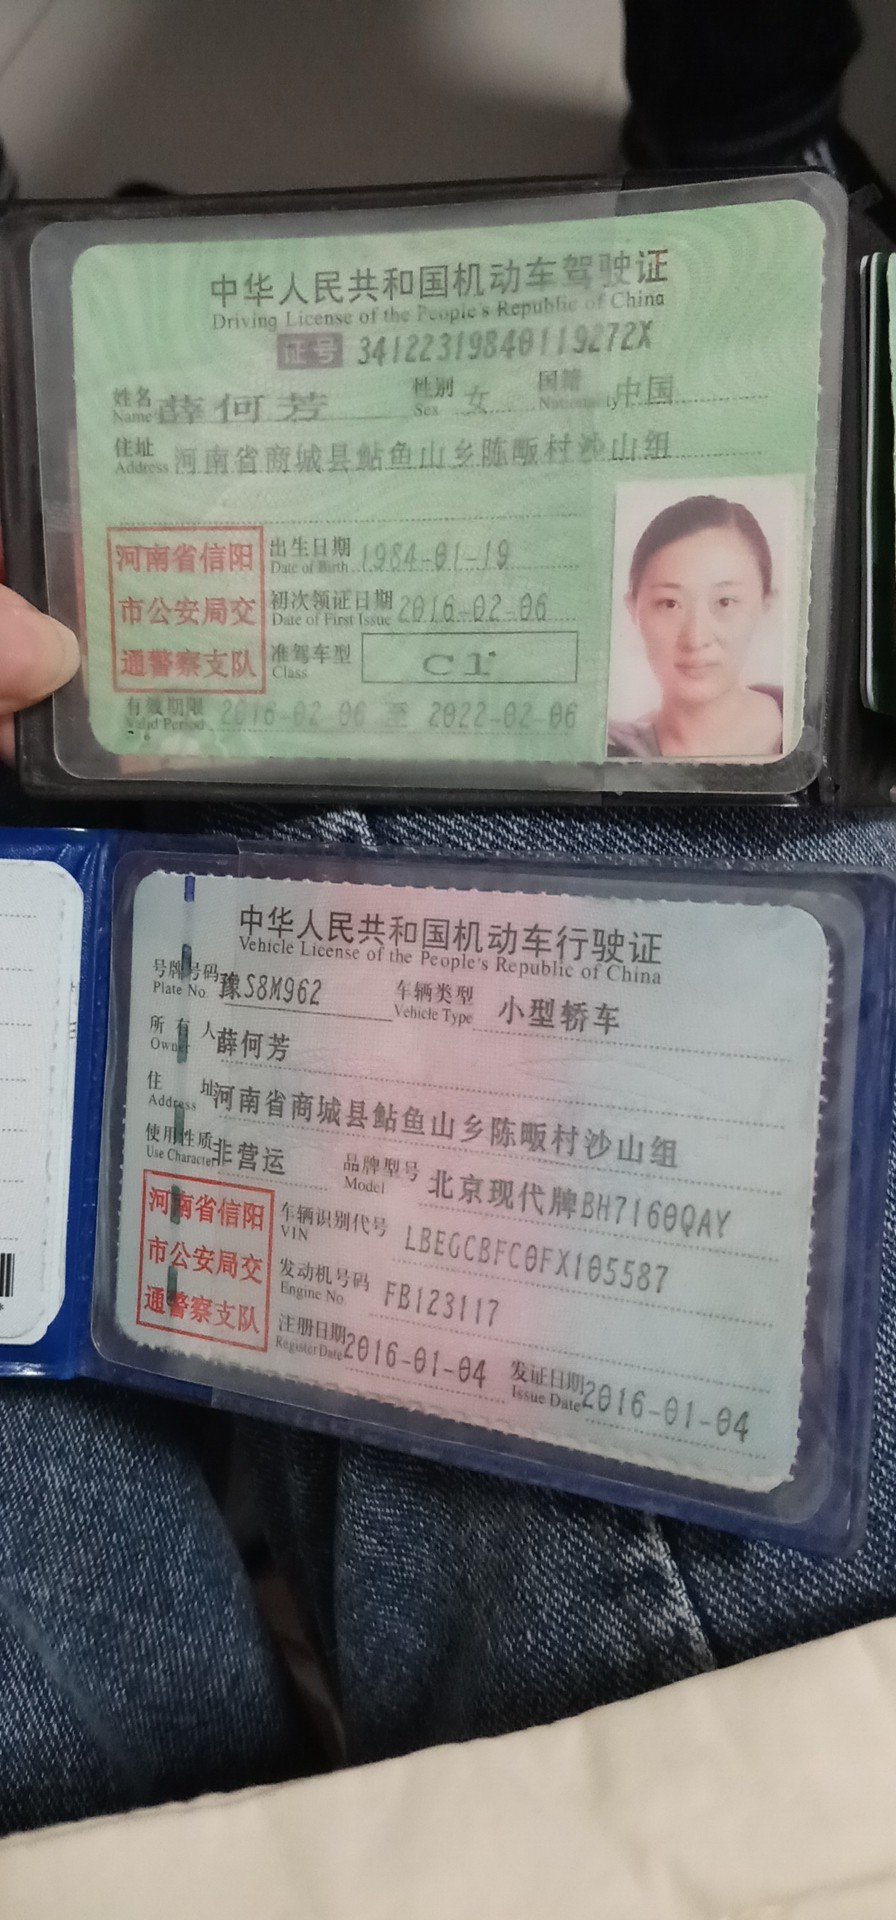 中华人民共和国机动车驾驶证
Driving License of the People's Republic of China
证号 34122319840119272X
姓名 薛何芳 性别 女 国籍 中国
Name Sex Nationality
住址 河南省商城县鲇鱼山乡陈畈村沙山组
Address
河南省信阳
市公安局交
通警察支队
出生日期 1984-01-19
Date of Birth
初次领证日期 2016-02-06
Date of First Issue
准驾车型 C1
Class
有效期限 2016-02-06 至 2022-02-06
Valid Period
中华人民共和国机动车行驶证
Vehicle License of the People's Republic of China
号牌号码 豫S8M962 车辆类型 小型轿车
Plate No. Vehicle Type
所有人 薛何芳
Owner
住址 河南省商城县鲇鱼山乡陈畈村沙山组
Address
使用性质 非营运 品牌型号 北京现代牌BH7160QAY
Use Character Model
河南省信阳
市公安局交
通警察支队
车辆识别代号 LBEGCBFC0FX105587
VIN
发动机号码 FB123117
Engine No.
注册日期 2016-01-04 发证日期 2016-01-04
Register Date Issue Date